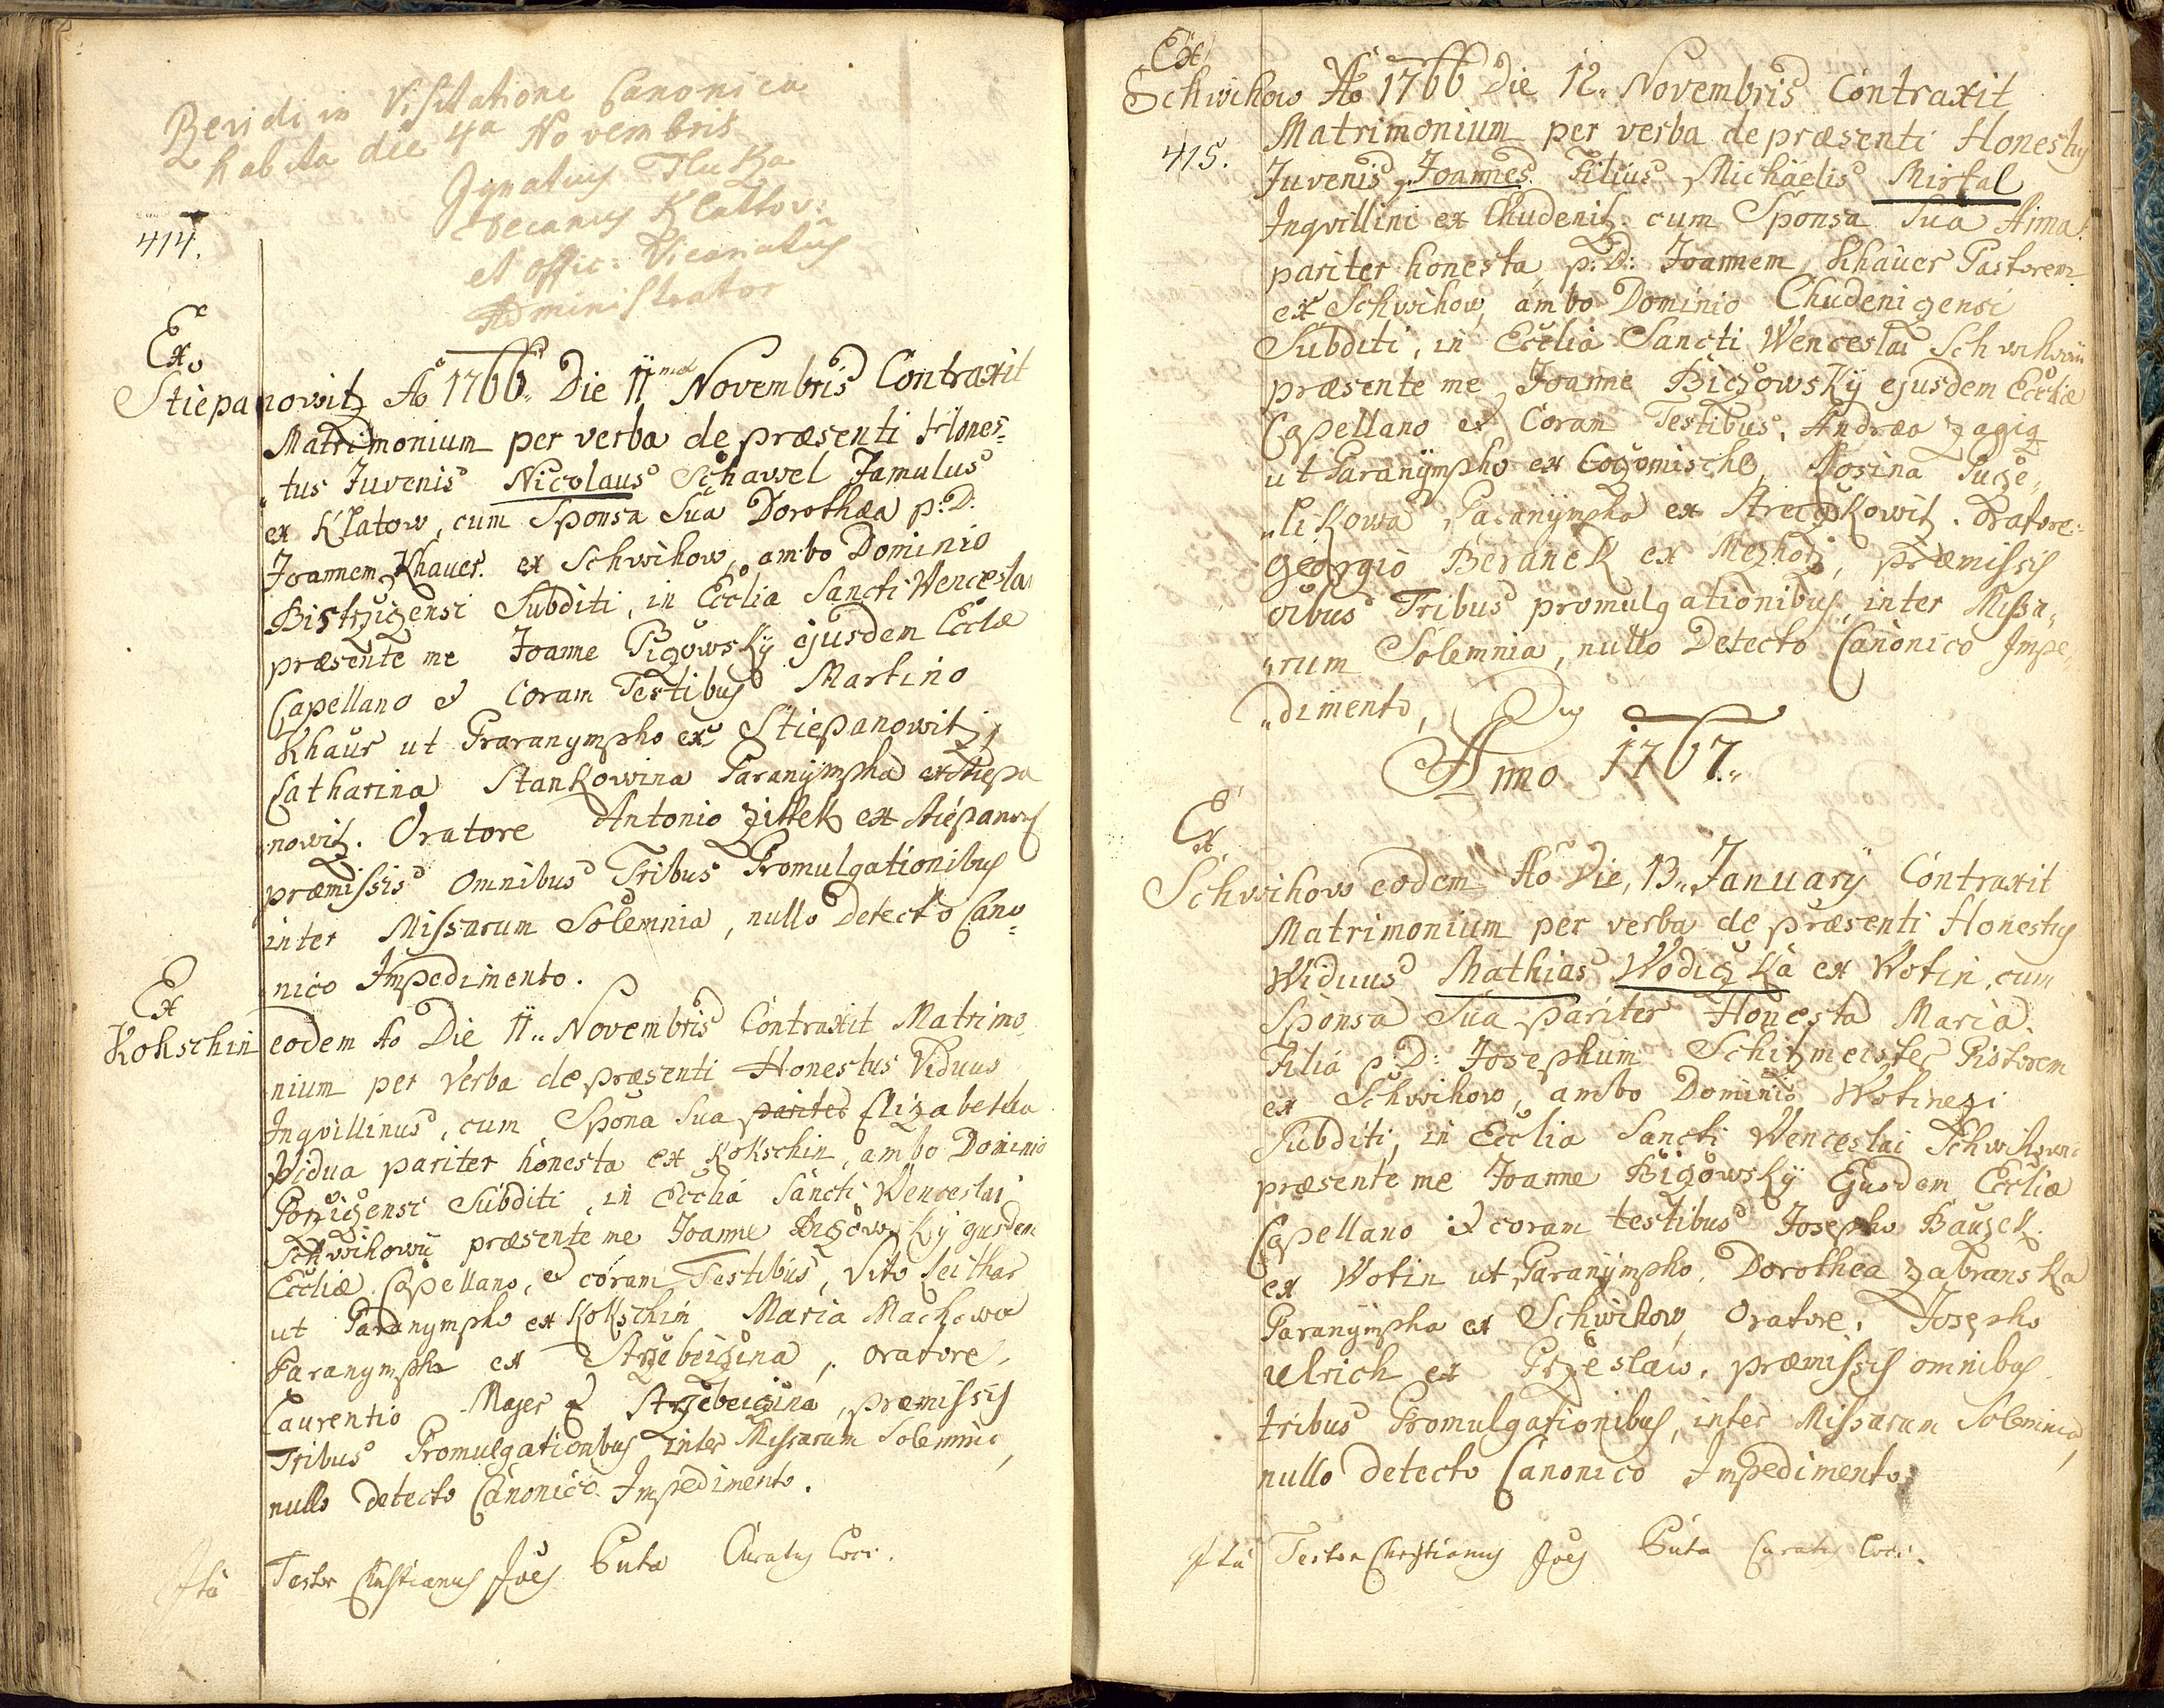 Revidi in Visitatione Canonica
habita die 4a Novembris
Ignatius Tluka
Decanus Klattov:
et offic: Vicariatus
Administrator
414.
Ex
Stiepanowitz Ao 1766. Die 11ma Novembris Contraxit
Matrimonium per verba de præsenti Hones=
tus Juvenis Nicolaus Schawel Famulus
ex Klatow, cum Sponsa Sua Dorothæa p: D:
Joannem Khauer. ex Schwihow, ambo Dominio
Bistrzizensi Subditi, in Ecclia Sancti Wenceslai
præsente me Joanne Bizowsky ejusdem Eccle
Capellano et Coram Testibus Martino
Khaur ut Praranympho ex Stiepanowitz,
Catharina Stankowina Paranÿmpha ex Stiepa
nowitz. Oratore Antonio Zittek ex Stiepanow
præmissis Omnibus Tribus Promulgationibus
inter Missarum Solemnia, nullo Detecto Cano=
nico Impedimento.
Ex
Kokschin eodem Ao Die 11.. Novembris Contraxit Matrimo
nium per Verba de præsenti Honestus Viduus
Inqvillinus, cum Spona Sua pariter Elizabetha
Vidua pariter honesta ex Kokschin, ambo Dominio
Porzizensi Subditi, in Ecclia Sancti Wenceslai
Schwihowii præsente me Joanne Bizowsky ejusdem
Eccliæ Capellano, et coram Testibus, Vito Leithar
ut Paranympho ex Kokschin Maria Machowa
Paranympha ex Strzebeizina, oratore,
Laurentio Majer ex Strzebeizina, præmissis
Tribus Promulgationibus inter Missarum Solemnia,
nullo detecto Canonico Impedimento.
Ita Testor Christianus Joes Guta Curatus Loci.
Ex
Schwihow Ao 1766 Die 12.. Novembris Contraxit
415.
Matrimonium per verba de præsenti Honestus
Juvenis Joannes Filius Michaelis Mirtal
Inqvillini ex Chudenitz. cum Sponsa Sua Anna.
pariter honesta, p: D: Joannem Khauer Pastorem
ex Schwihow, ambo Dominio Chudenizensi
Subditi, in Ecclia Sancti Wenceslai Schwihowii
præsente me Joanne Bizowskÿ ejusdem Eccliæ
Capellano et Coram Testibus, Andræa Zagiz
ut Paranÿmpho ex Coczomischl, Rosina
Paranÿmpha ex Streczkowitz. Oratore
Georgio Beranek ex Mezhorz, præmissis
oibus Tribus promulgationibus, inter Missa,,
,,rum Solemnia, nullo Detecto Canonico Impe,,
,,dimento,
Anno 1767.
Ex
Schwihow eodem Ao Die, 13.. Januarÿ Contraxit
Matrimonium per verba de præsenti Honestus
Viduus Mathias Wodiczka ex Wotin, cum
Sponsa Sua pariter Honesta Maria.
Filia p: D: Josephum Schitzmeister Pistorem
ex Schwihow, ambo Dominio Wotinezi
Subditi, in Ecclia Sancti Wenceslai Schwihowii
præsente me Joanne Bizowskÿ Ejusdem Eccliæ
Capellano et coram testibus Josepho Bauzek.
ex Wotin ut Paranÿmpho, Dorothea Zabranska
Paranÿmpha ex Schwihow, Oratore, Josepho
Ulrich ex Przeslaw, præmissis omnibus
tribus Promulgationibus, inter Missarum Solemnia,
nullo detecto Canonico Impedimento
Ita Testor Christianus Joes Guta Curatus Loci.